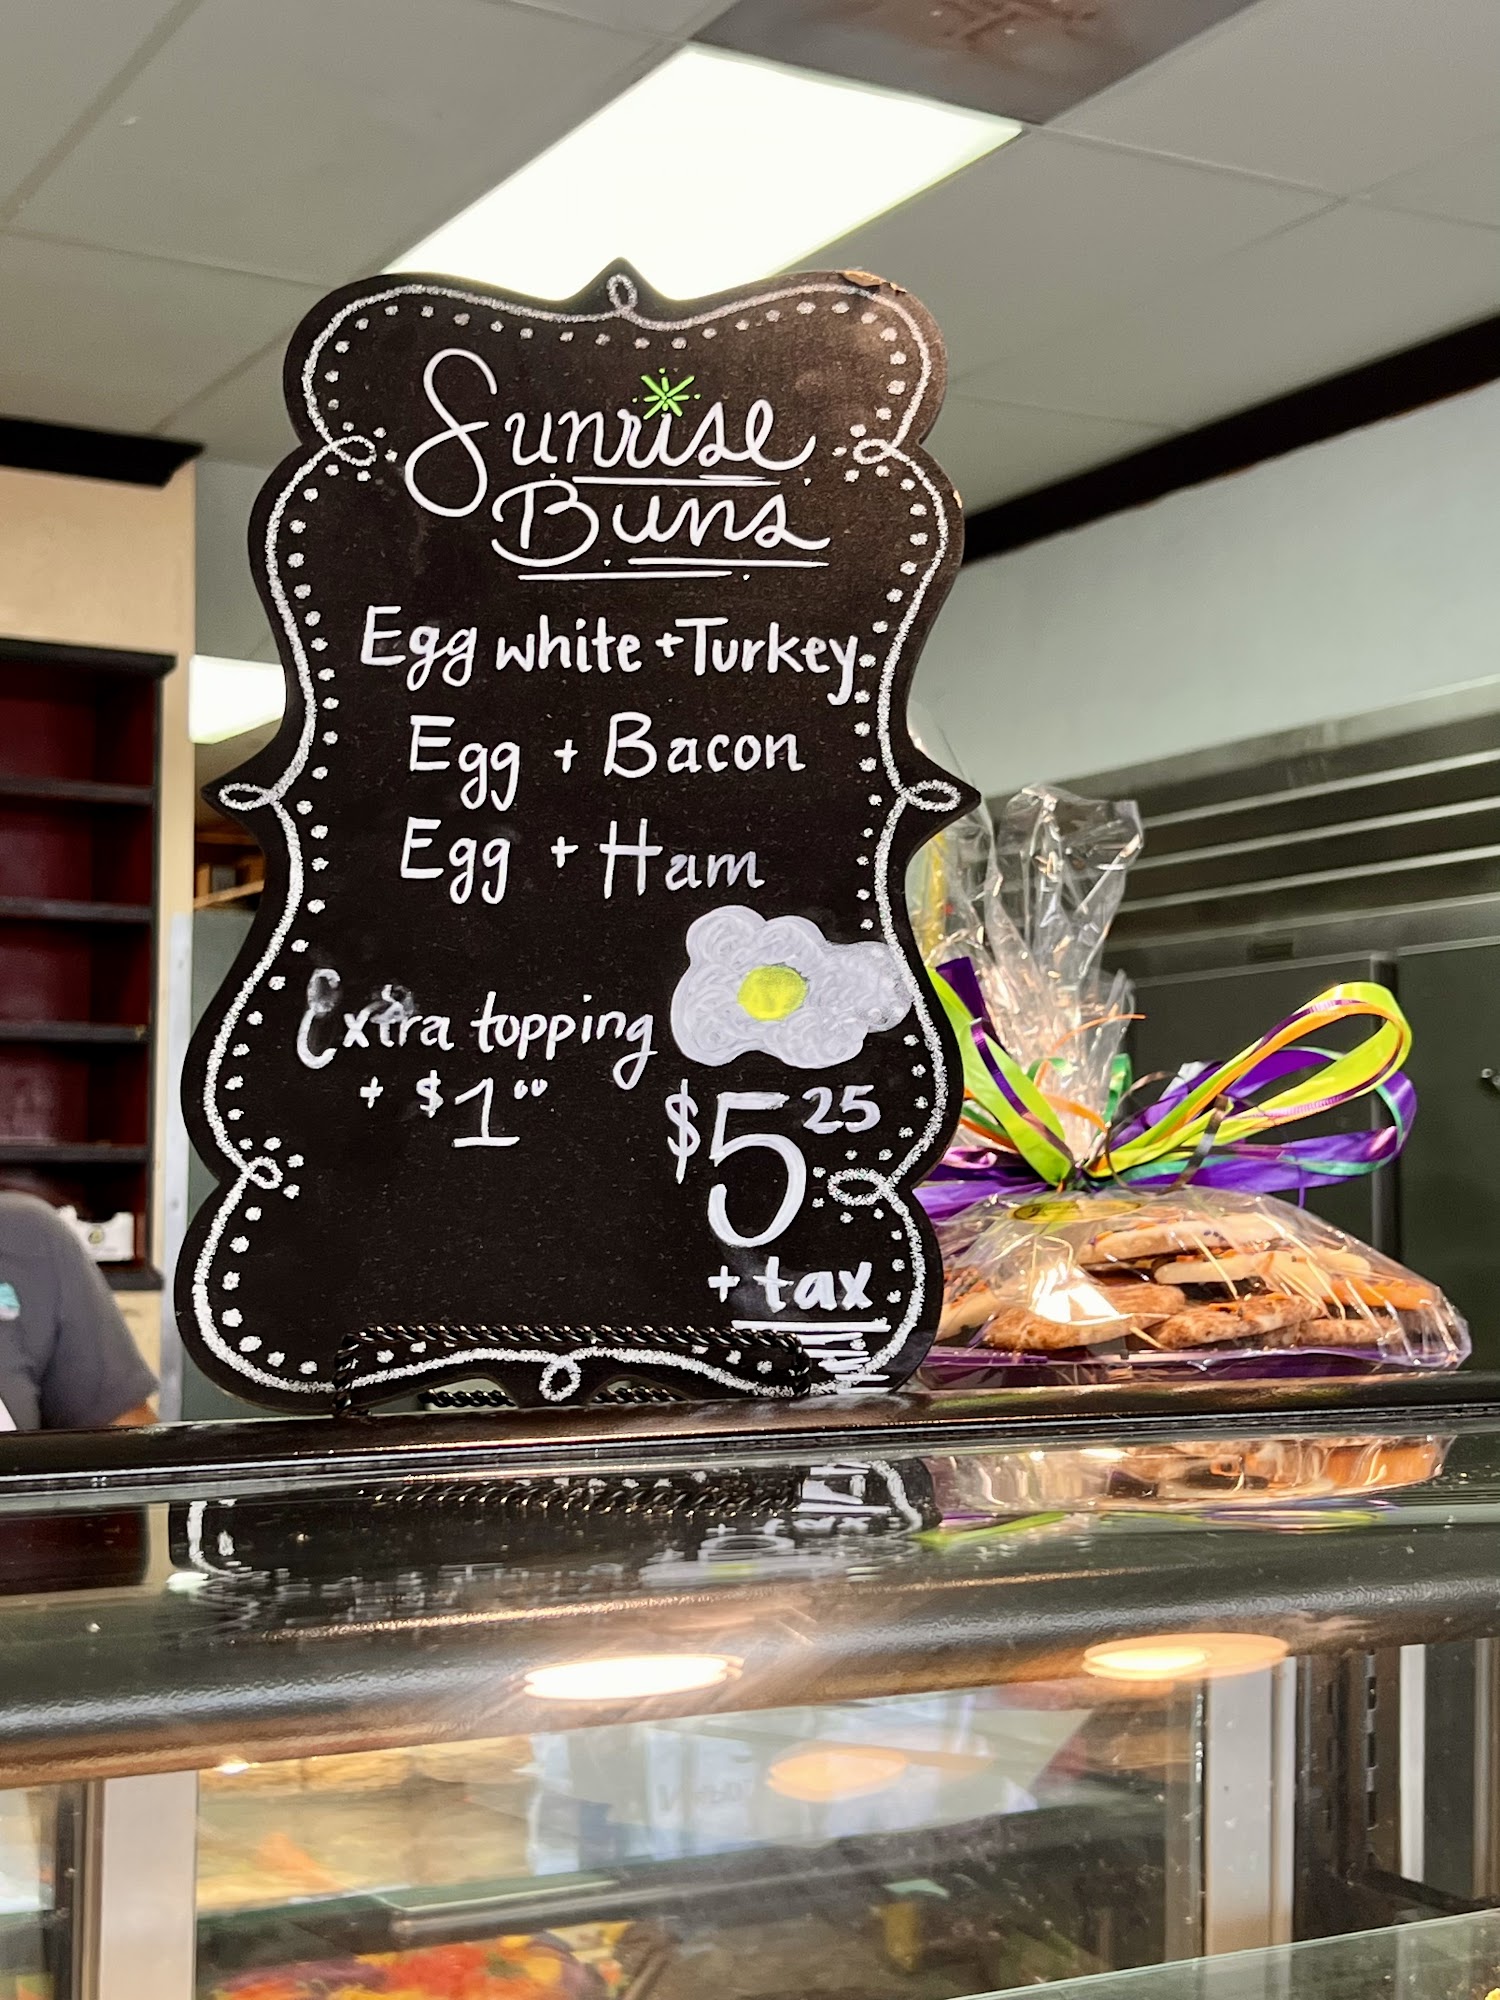 Sunrise
Buns
Egg white + Turkey
Egg + Bacon
Egg + Ham
Extra topping
+ $1.00
$5.25
+ tax